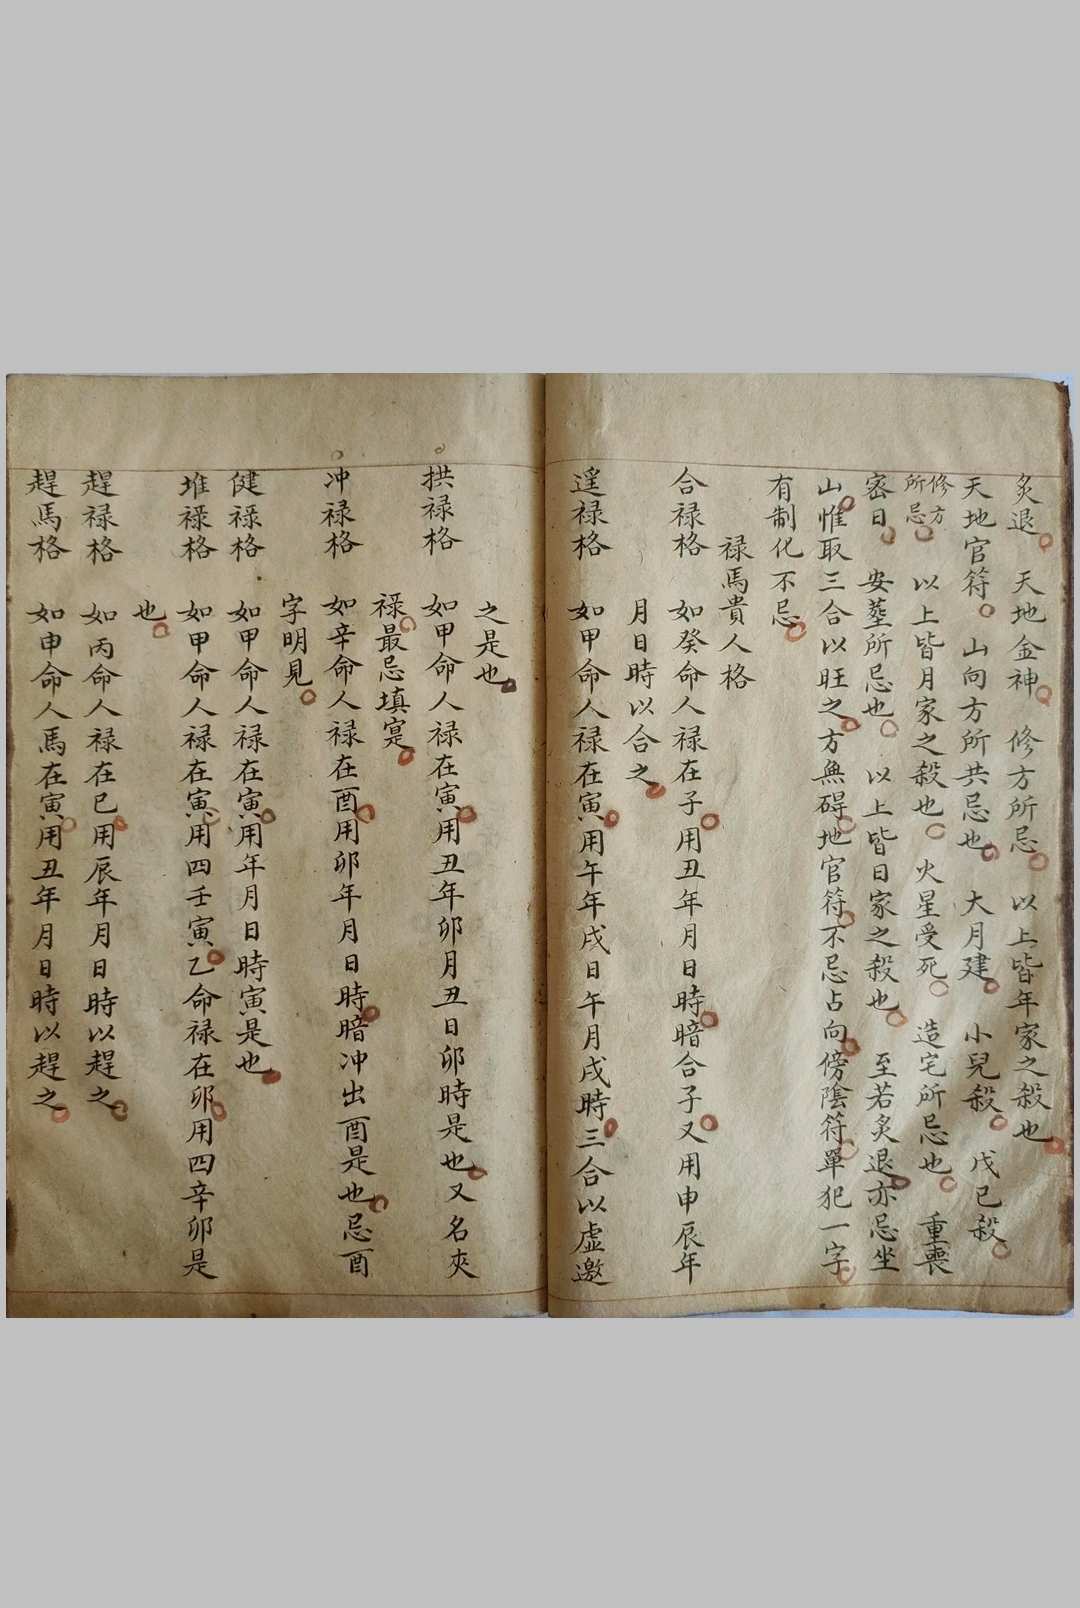 炙退 天地金神 修方所忌 以上皆年家之殺也
天地官符 山向方所共忌也 大月建 小兒殺 戊己殺
修方所忌 以上皆月家之殺也 火星受死 造宅所忌也 重喪
密日 安塟所忌也 以上皆日家之殺也 至若炙退亦忌坐
山惟取三合以旺之方無碍地官符不忌占向傍陰符單犯一字
有制化不忌
祿馬貴人格
合祿格 如癸命人祿在子用丑年月日時暗合子又用申辰年
月日時以合之
遥祿格 如甲命人祿在寅用午年戌日午月戌時三合以虛邀
之是也
拱祿格 如甲命人祿在寅用丑年卯月丑日卯時是也又名夾
祿最忌填寔
冲祿格 如辛命人祿在酉用卯年月日時暗冲出酉是也忌酉
字明見
健祿格 如甲命人祿在寅用年月日時寅是也
堆祿格 如甲命人祿在寅用四壬寅乙命祿在卯用四辛卯是
也
趕祿格 如丙命人祿在巳用辰年月日時以趕之
趕馬格 如申命人馬在寅用丑年月日時以趕之